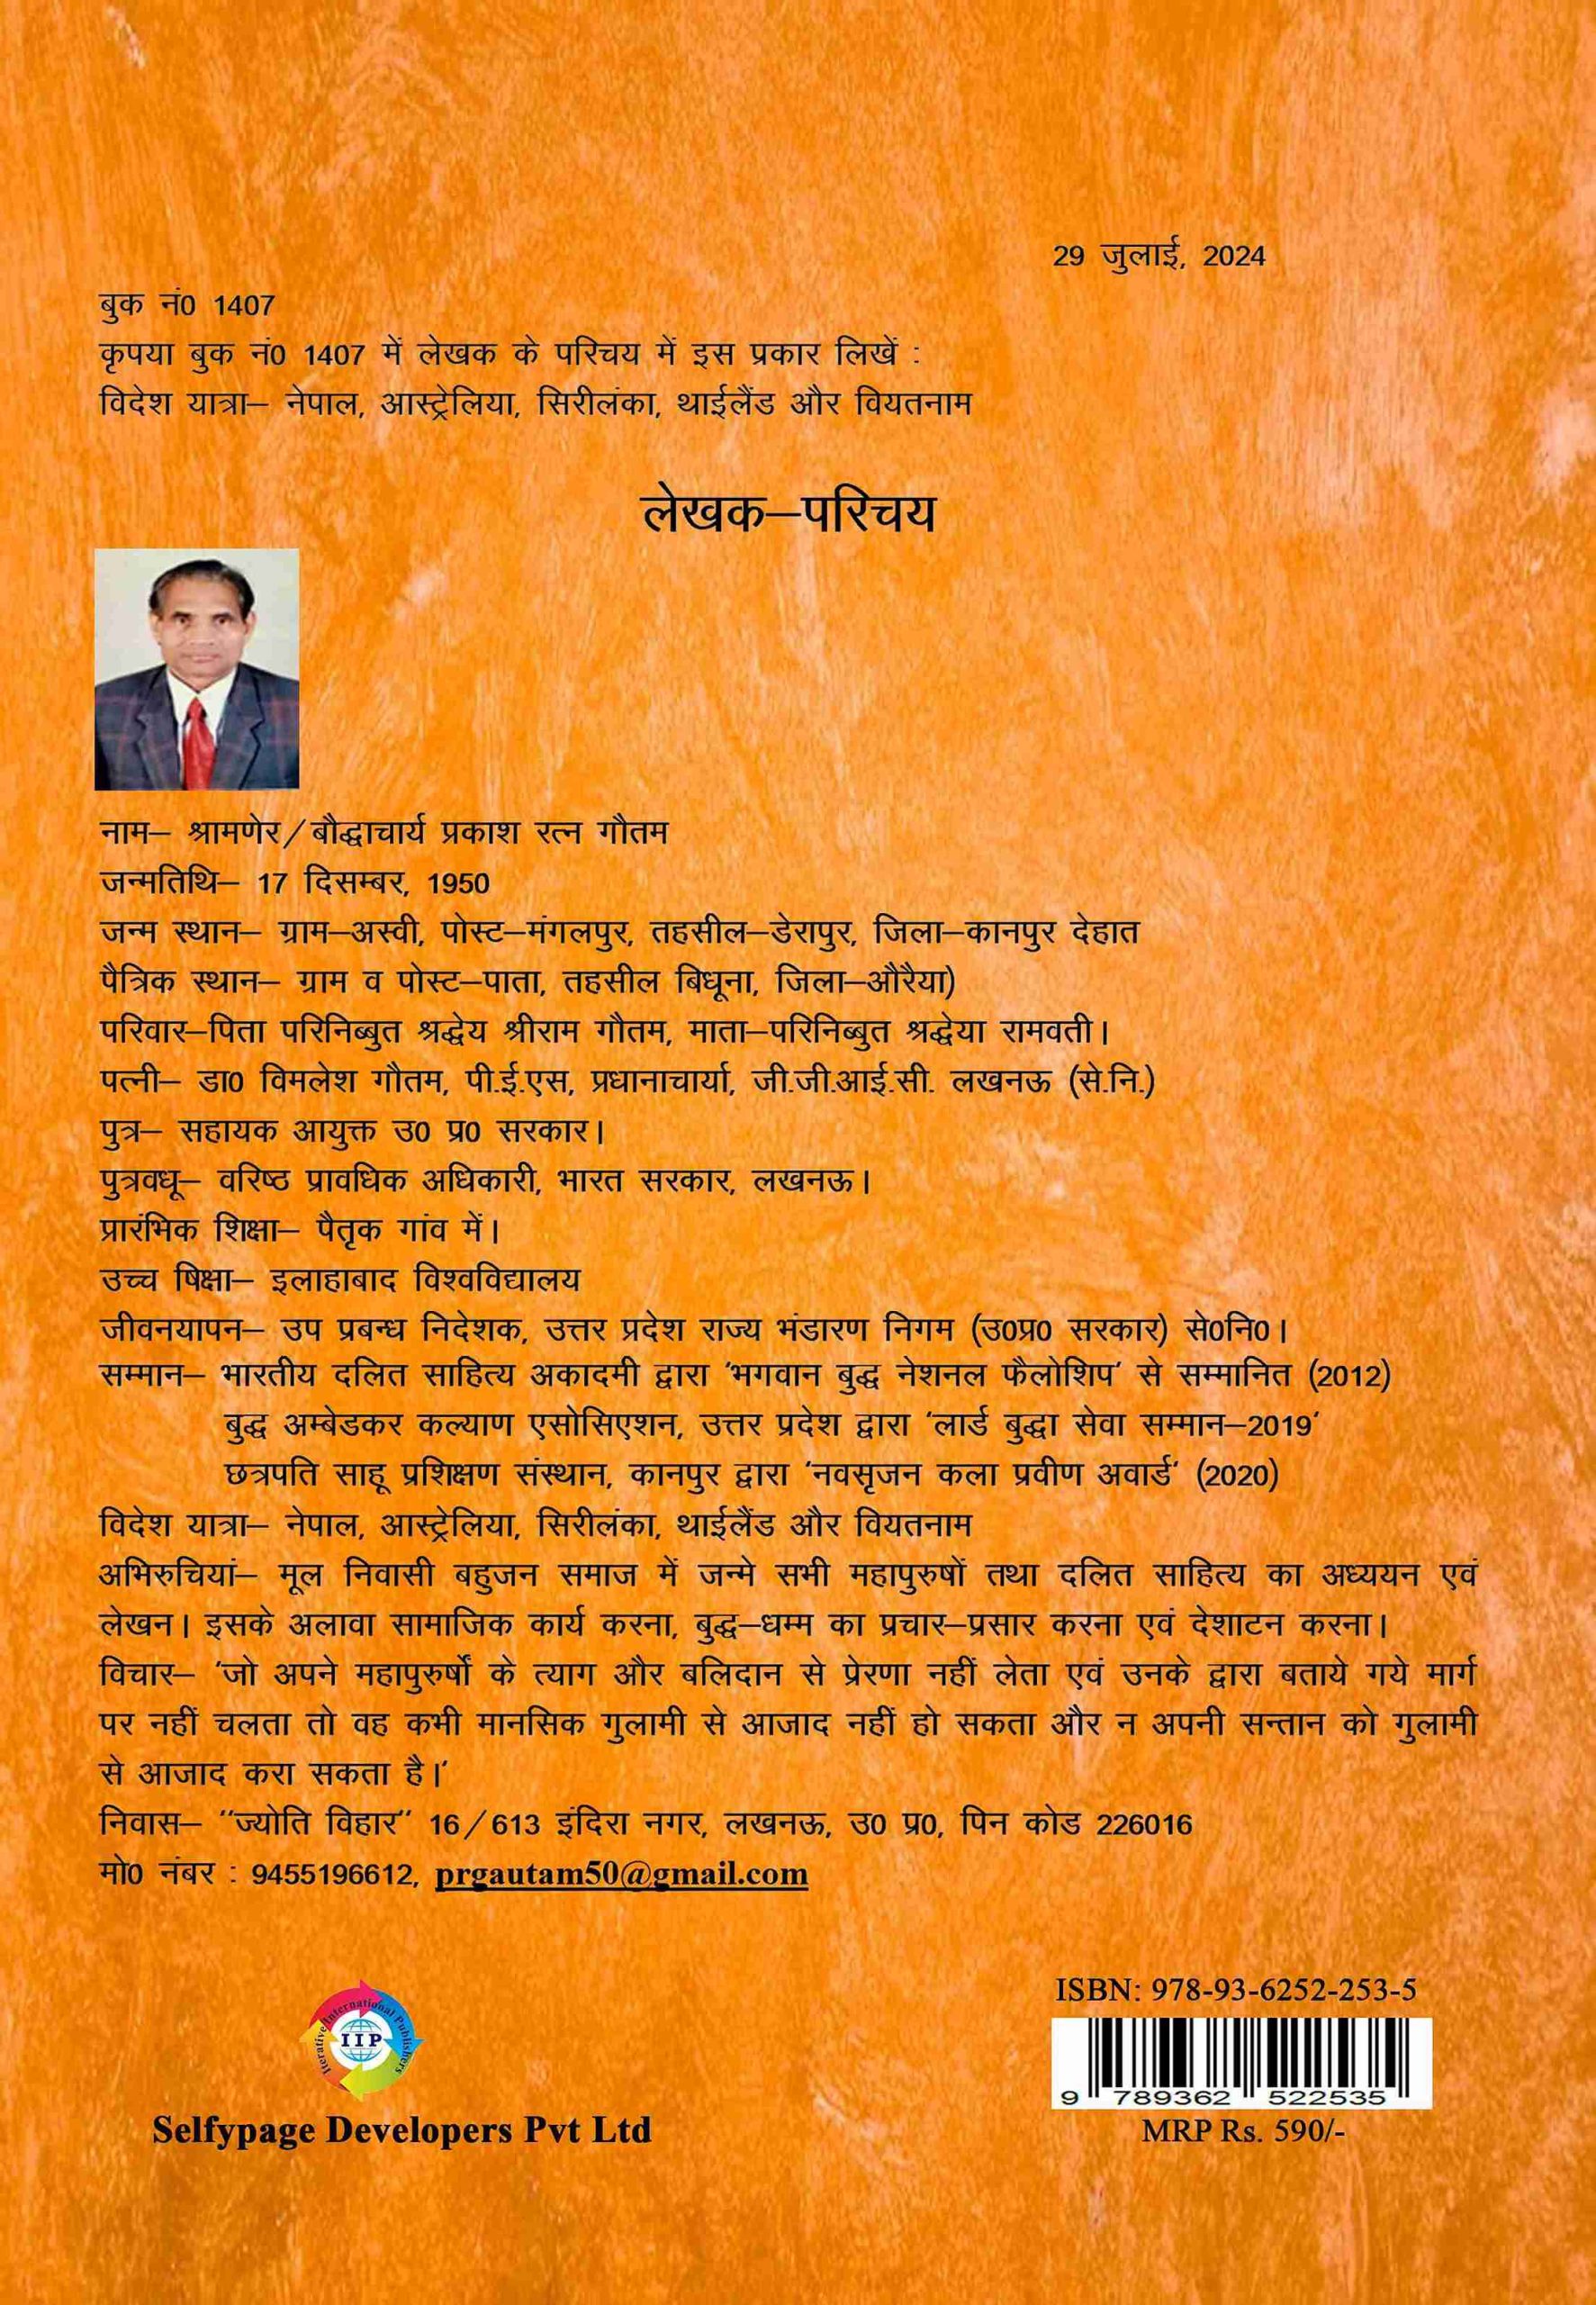 29 जुलाई, 2024
बुक नं0 1407
कृपया बुक नं0 1407 में लेखक के परिचय में इस प्रकार लिखें :
विदेश यात्रा– नेपाल, आस्ट्रेलिया, सिरीलंका, थाईलैंड और वियतनाम
लेखक–परिचय
नाम– श्रामणेर/बौद्धाचार्य प्रकाश रत्न गौतम
जन्मतिथि– 17 दिसम्बर, 1950
जन्म स्थान– ग्राम–अस्वी, पोस्ट–मंगलपुर, तहसील–डेरापुर, जिला–कानपुर देहात
पैत्रिक स्थान– ग्राम व पोस्ट–पाता, तहसील बिधूना, जिला–औरैया)
परिवार–पिता परिनिब्बुत श्रद्धेय श्रीराम गौतम, माता–परिनिब्बुत श्रद्धेया रामवती।
पत्नी– डा0 विमलेश गौतम, पी.ई.एस, प्रधानाचार्या, जी.जी.आई.सी. लखनऊ (से.नि.)
पुत्र– सहायक आयुक्त उ0 प्र0 सरकार।
पुत्रवधू– वरिष्ठ प्रावधिक अधिकारी, भारत सरकार, लखनऊ।
प्रारंभिक शिक्षा– पैतृक गांव में।
उच्च षिक्षा– इलाहाबाद विश्वविद्यालय
जीवनयापन– उप प्रबन्ध निदेशक, उत्तर प्रदेश राज्य भंडारण निगम (उ0प्र0 सरकार) से0नि0।
सम्मान– भारतीय दलित साहित्य अकादमी द्वारा ‘भगवान बुद्ध नेशनल फैलोशिप’ से सम्मानित (2012)
बुद्ध अम्बेडकर कल्याण एसोसिएशन, उत्तर प्रदेश द्वारा ‘लार्ड बुद्धा सेवा सम्मान–2019’
छत्रपति साहू प्रशिक्षण संस्थान, कानपुर द्वारा ‘नवसृजन कला प्रवीण अवार्ड’ (2020)
विदेश यात्रा– नेपाल, आस्ट्रेलिया, सिरीलंका, थाईलैंड और वियतनाम
अभिरुचियां– मूल निवासी बहुजन समाज में जन्मे सभी महापुरुषों तथा दलित साहित्य का अध्ययन एवं
लेखन। इसके अलावा सामाजिक कार्य करना, बुद्ध–धम्म का प्रचार–प्रसार करना एवं देशाटन करना।
विचार– ‘जो अपने महापुरुर्षों के त्याग और बलिदान से प्रेरणा नहीं लेता एवं उनके द्वारा बताये गये मार्ग
पर नहीं चलता तो वह कभी मानसिक गुलामी से आजाद नहीं हो सकता और न अपनी सन्तान को गुलामी
से आजाद करा सकता है।’
निवास– ‘‘ज्योति विहार’’ 16/613 इंदिरा नगर, लखनऊ, उ0 प्र0, पिन कोड 226016
मो0 नंबर : 9455196612, prgautam50@gmail.com
Iterative International Publishers
IIP
Selfypage Developers Pvt Ltd
ISBN: 978-93-6252-253-5
9 789362 522535
MRP Rs. 590/-